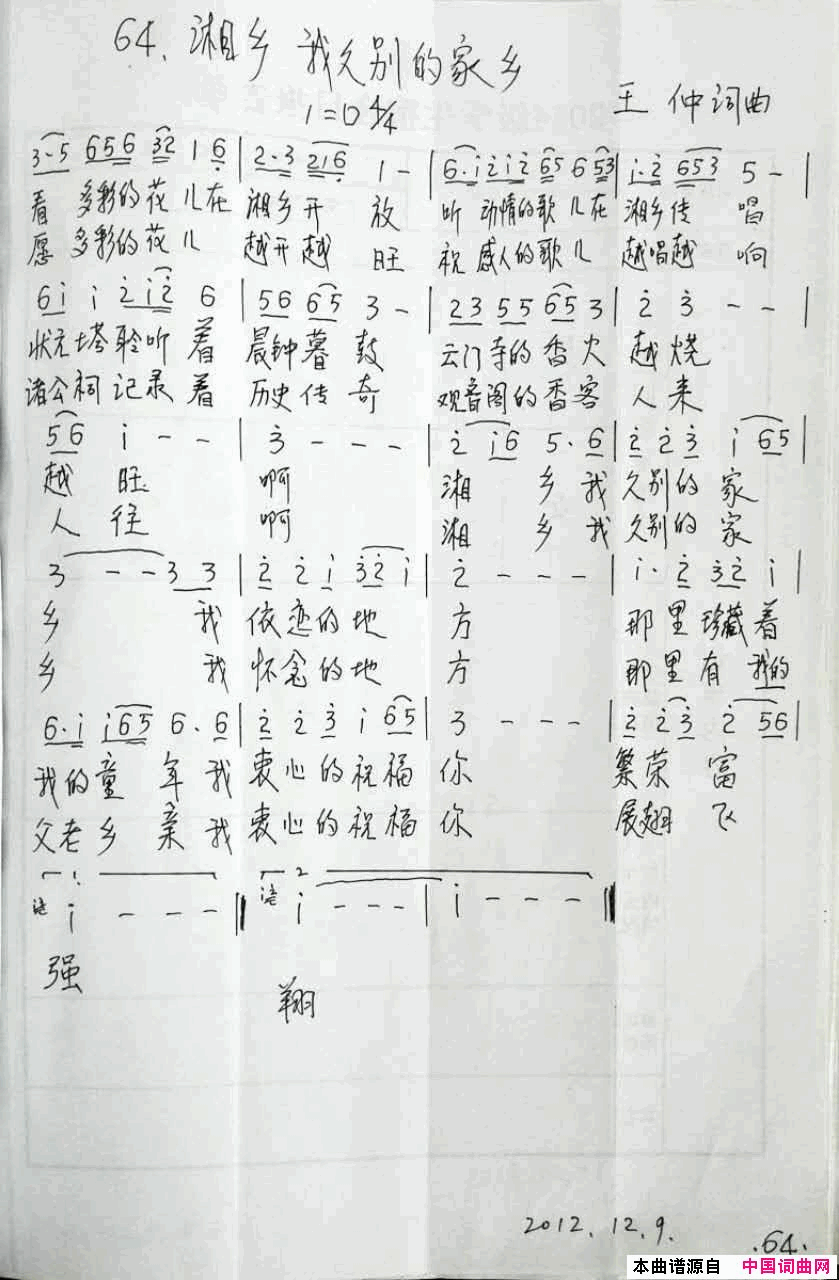 64. 湘乡 我久别的家乡
1=D 4/4
王 仲词曲
3·5 656 32 1 6 | 2·3 216 1 - | 6·i 2i2 65 6 53 | i·2 653 5 - |
看 多彩的花儿在 湘乡开 放 听 动情的歌儿在 湘乡传 唱
愿 多彩的花儿 越开越 旺 祝 感人的歌儿 越唱越 响
6i i 2i2 6 | 56 65 3 - | 23 55 65 3 | 2 3 - - |
状元塔聆听着 晨钟暮鼓 云门寺的香火 越烧
诸公祠记录着 历史传奇 观音阁的香客 人来
56 i - - | 3 - - - | 2 i6 5·6 | 2 2 3 i 65 |
越旺 啊 湘 乡我 久别的家
人往 啊 湘 乡我 久别的家
3 - - 3 3 | 2 2 i 32 i | 2 - - - | i·2 32 i |
乡 我 依恋的地 方 那里珍藏着
乡 我 怀念的地 方 那里有我的
6·i i65 6·6 | 2 2 3 i 65 | 3 - - - | 2 2 3 2 56 |
我的童年我 衷心的祝福 你 繁荣富
父老乡亲我 衷心的祝福 你 展翅飞
1. 2
i - - - || i - - - | i - - - ||
强
翔
2012.12.9.
.64.
本曲谱源自 中国词曲网